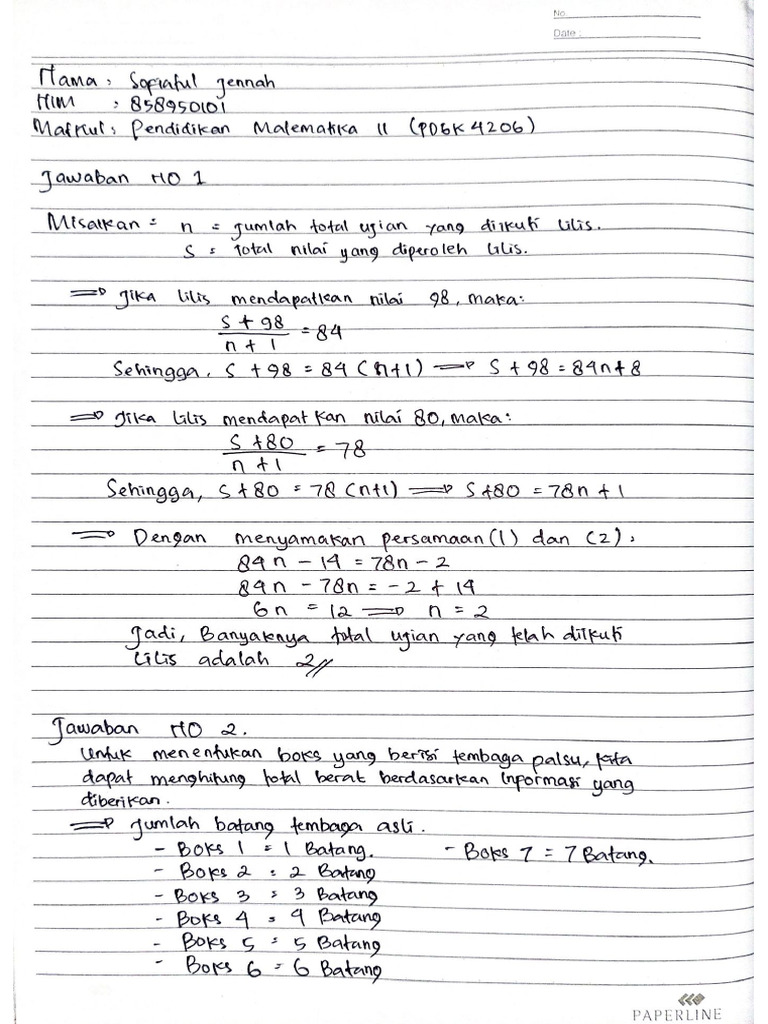 No.
Date :
Nama : Sofiatul Jennah
NIM : 858950101
Matkul : Pendidikan Matematika II (PDGK 4206)
Jawaban NO 1
Misalkan = n = Jumlah total ujian yang diikuti Lilis.
S = Total nilai yang diperoleh Lilis.
⇒ Jika Lilis mendapatkan nilai 98, maka:
S + 98
n + 1
= 84
Sehingga, S + 98 = 84 (n+1) → S + 98 = 84n + 8
⇒ Jika Lilis mendapatkan nilai 80, maka:
S + 80
n + 1
= 78
Sehingga, S + 80 = 78 (n+1) ⇒ S + 80 = 78n + 1
⇒ Dengan menyamakan persamaan (1) dan (2) :
84n - 14 = 78n - 2
84n - 78n = -2 + 14
6n = 12 ⇒ n = 2
Jadi, Banyaknya total ujian yang telah diikuti
Lilis adalah 2 //
Jawaban NO 2.
Untuk menentukan boks yang berisi tembaga palsu, kita
dapat menghitung total berat berdasarkan Informasi yang
diberikan.
⇒ Jumlah batang tembaga asli.
- Boks 1 = 1 Batang. - Boks 7 = 7 Batang.
- Boks 2 = 2 Batang
- Boks 3 = 3 Batang
- Boks 4 = 4 Batang
- Boks 5 = 5 Batang
- Boks 6 = 6 Batang
PAPERLINE